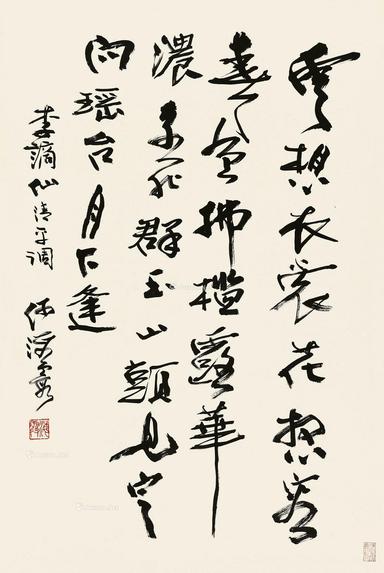 雲想衣裳花想容
春風拂槛露華
濃若非群玉山頭見會
向瑶台月下逢
李謫仙清平调 何海霞